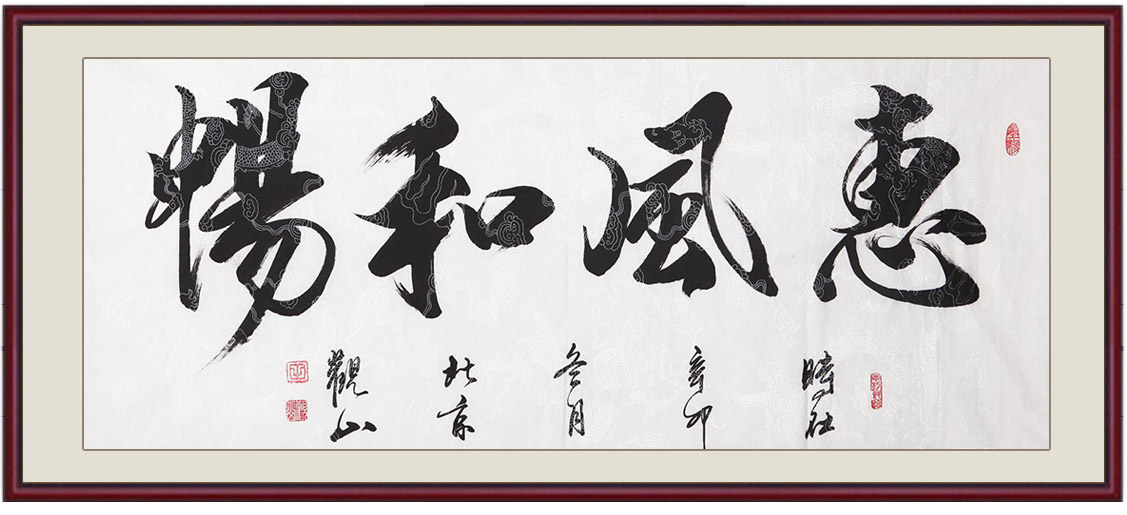 惠風和暢
時在
辛卯
冬月
北京
觀山